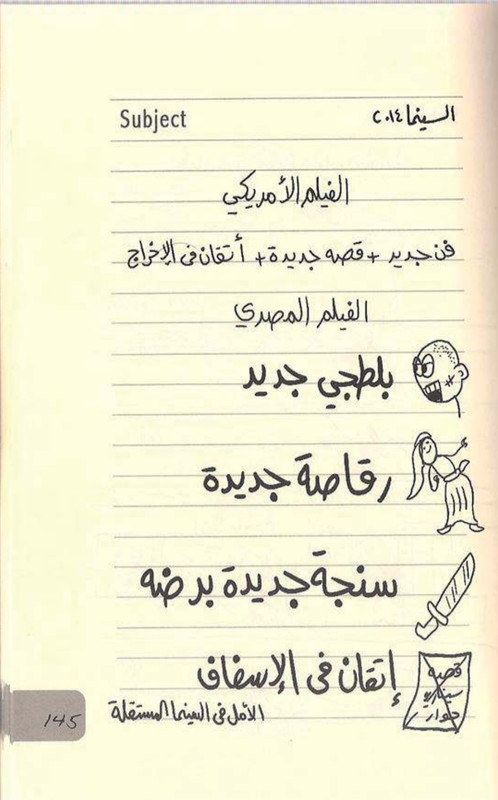 السينما ٢٠١٤
Subject
الفيلم الأمريكي
فن جديد + قصه جديدة + أتقان فى الإخراج
الفيلم المصري
بلطجي جديد
رقاصة جديدة
سنجة جديدة برضه
إتقان فى الإسفاف
قصه
سيناريو
حوار
الأمل فى السينما المستقلة
145